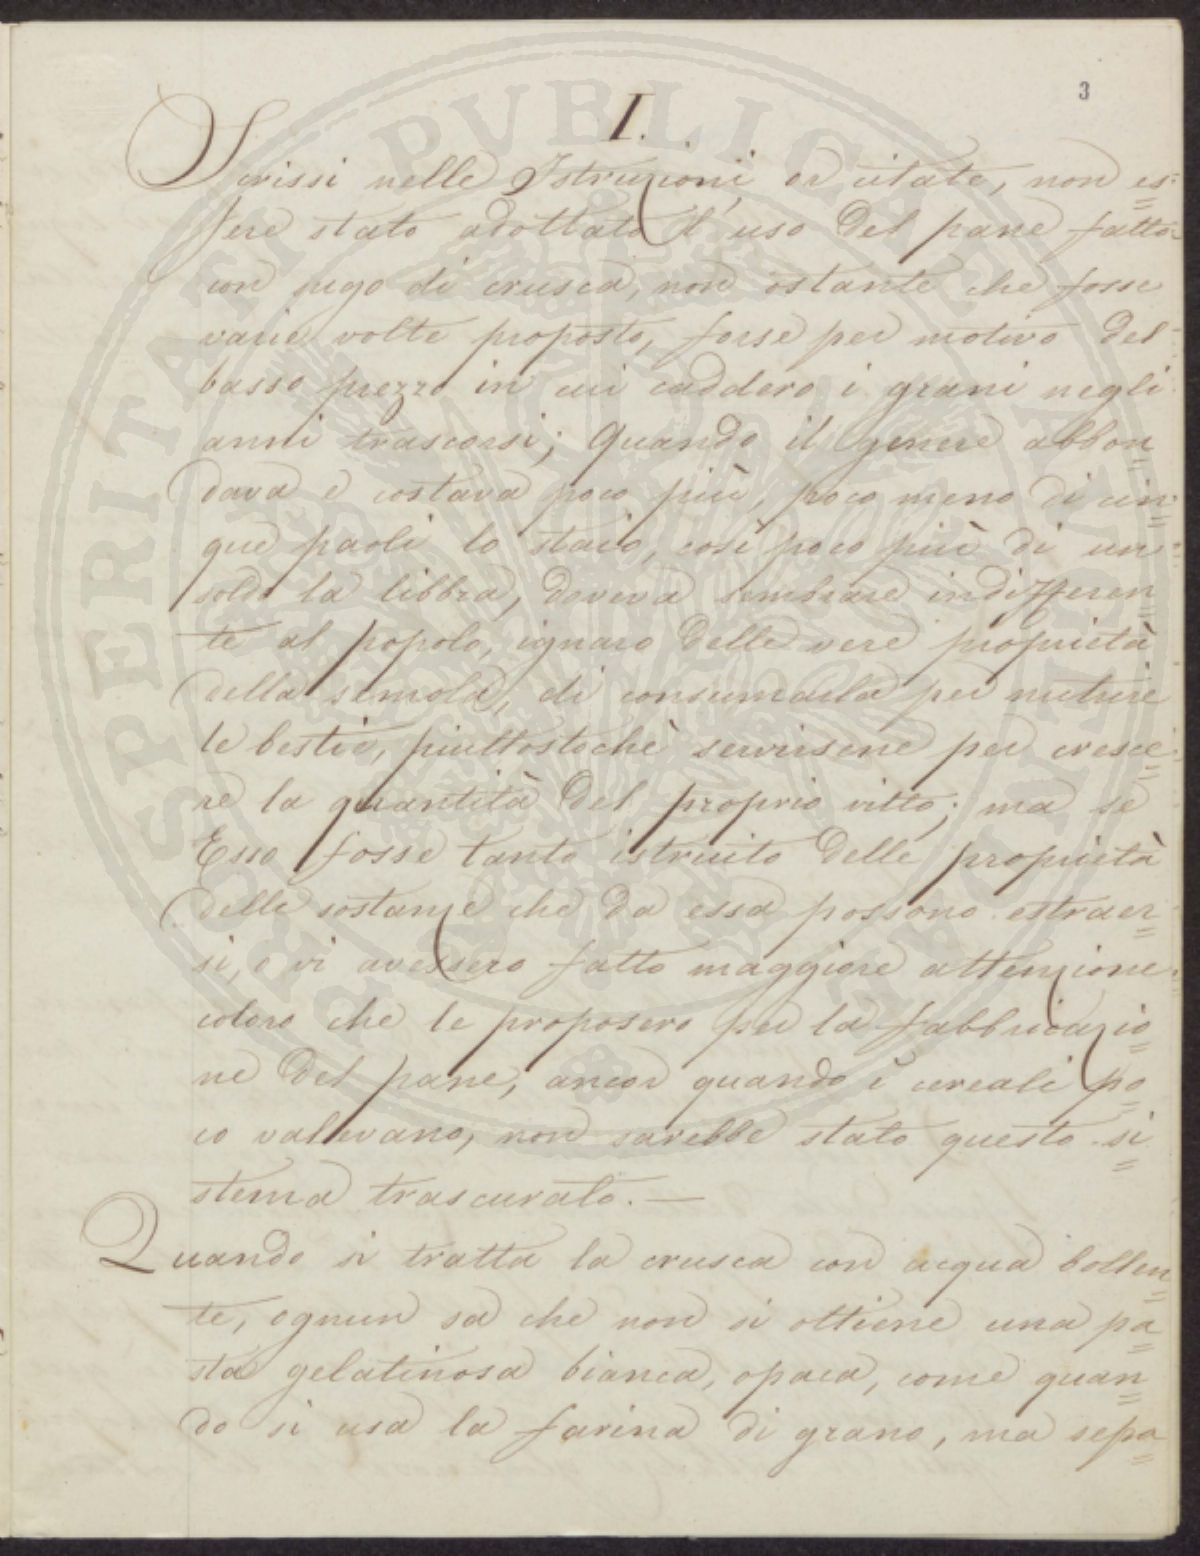 3
I.
Scrissi nelle Istruzioni or citate, non es=
sere stato adottato l'uso del pane fatto
con sugo di crusca, non ostante che fosse
varie volte proposto, forse per motivo del
basso prezzo in cui caddero i grani negli
anni trascorsi; Quando il genere abbon=
dava e costava poco più, poco meno di cin=
que paoli lo staio, così poco più di un
soldo la libbra, doveva sembrare indifferen=
te al popolo, ignaro delle vere proprietà
della semola, di consumarla per nutrire
le bestie, piuttostochè servirsene per cresce=
re la quantità del proprio vitto; ma se
Esso fosse tanto istruito delle proprietà
delle sostanze che da essa possono estraer=
si, e vi avessero fatto maggiore attenzione
coloro che le proposero per la fabbricazio=
ne del pane, ancor quando i cereali po=
co valevano, non sarebbe stato questo si=
stema trascurato. —
Quando si tratta la crusca con acqua bollen=
te, ognun sa che non si ottiene una pa=
sta gelatinosa bianca, opaca, come quan=
do si usa la farina di grano, ma sepa=
PROSPERITATI PUBLICAE